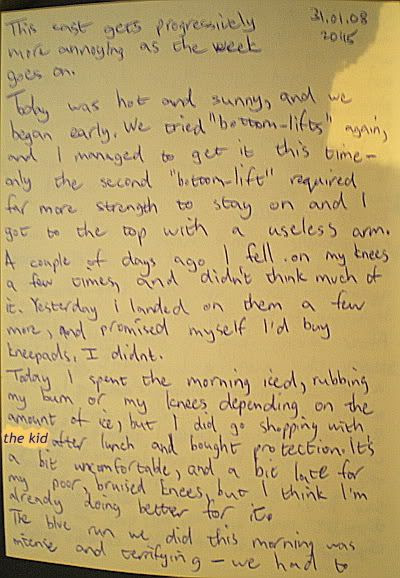 This cast gets progressively
31.01.08
more annoying as the week
2015
goes on.
Today was hot and sunny, and we
began early. We tried "bottom-lifts" again,
and I managed to get it this time-
only the second "bottom-lift" required
far more strength to stay on and I
got to the top with a useless arm.
A couple of days ago I fell on my knees
a few times, and didn't think much of
it. Yesterday i landed on them a few
more, and promised myself I'd buy
kneepads. I didnt.
Today I spent the morning iced, rubbing
my bum or my knees depending on the
amount of ice, but I did go shopping with
the kid after lunch and bought protection. It's
a bit uncomfortable, and a bit late for
my poor, bruised knees, but I think I'm
already doing better for it.
The blue run we did this morning was
intense and terrifying - we had to